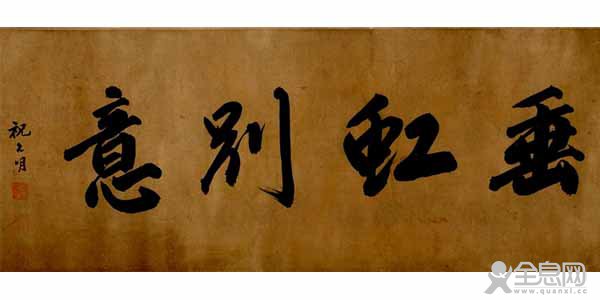 垂虹別意
祝允明
全息网
www.quanxi.cc